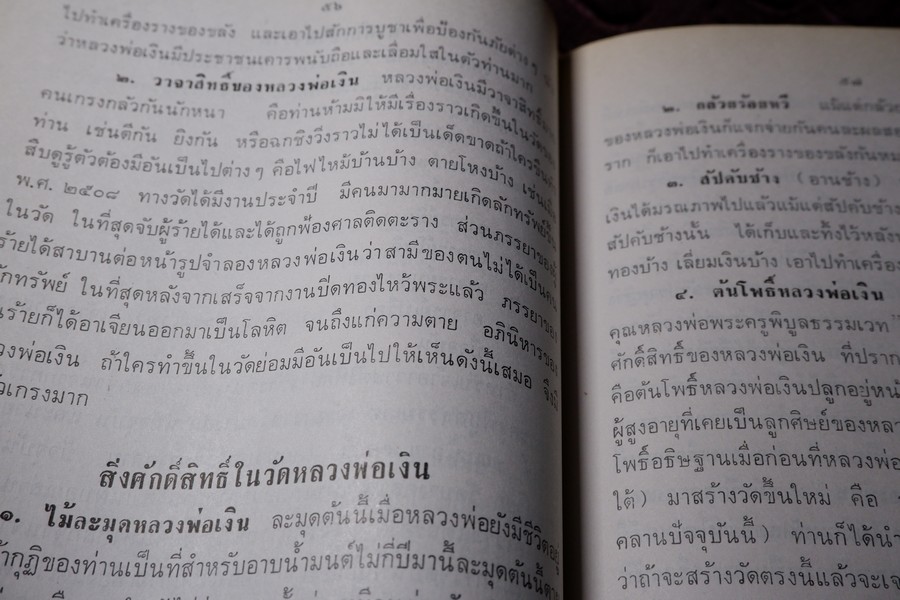 ๕๖
ไปทำเครื่องรางของขลัง และเอาไปสักการบูชาเพื่อป้องกันภัยต่าง ๆ
ว่าหลวงพ่อเงินมีประชาชนเคารพนับถือและเลื่อมใสในตัวท่านมาก
๒. วาจาสิทธิ์ของหลวงพ่อเงิน หลวงพ่อเงินมีวาจาสิทธิ์
คนเกรงกลัวกันนักหนา คือท่านห้ามมิให้มีเรื่องราวเกิดขึ้นในวัด
ท่าน เช่นตีกัน ยิงกัน หรือฉกชิงวิ่งราวไม่ได้เป็นเด็ดขาดถ้าใครขืน
สืบดูรู้ตัวต้องมีอันเป็นไปต่างๆ คือไฟไหม้บ้านบ้าง ตายโหงบ้าง เช่น
พ.ศ. ๒๕๐๘ ทางวัดได้มีงานประจำปี มีคนมามากมายเกิดลักทรัพย์
ในวัด ในที่สุดจับผู้ร้ายได้และได้ถูกฟ้องศาลติดตะราง ส่วนภรรยาของ
ร้ายได้สาบานต่อหน้ารูปจำลองหลวงพ่อเงินว่าสามีของตนไม่ได้เป็นคน
ักทรัพย์ ในที่สุดหลังจากเสร็จจากงานปิดทองไหว้พระแล้ว ภรรยาของ
ร้ายก็ได้อาเจียนออกมาเป็นโลหิต จนถึงแก่ความตาย อภินิหารของ
วงพ่อเงิน ถ้าใครทำขึ้นในวัดย่อมมีอันเป็นไปให้เห็นดังนี้เสมอ จึงมี
เกรงมาก
สิ่งศักดิ์สิทธิ์ในวัดหลวงพ่อเงิน
๑. ไม้ละมุดหลวงพ่อเงิน ละมุดต้นนี้เมื่อหลวงพ่อยังมีชีวิตอยู่
กุฏิของท่านเป็นที่สำหรับอาบน้ำมนต์ไม่กี่ปีมานี้ละมุดต้นนี้ตาย
๕๘
๒. กล้วยวัลยทวี แม้แต่กล้วย
ของหลวงพ่อเงินก็แจกจ่ายกันคนละผลสอง
ราก ก็เอาไปทำเครื่องรางของขลังกันหม
๓. สัปคับช้าง (อานช้าง)
เงินได้มรณภาพไปแล้วแม้แต่สัปคับช้าง
สัปคับช้างนั้น ได้เก็บและทิ้งไว้หลัง
ทองบ้าง เลี่ยมเงินบ้าง เอาไปทำเครื่อง
๔. ต้นโพธิ์หลวงพ่อเงิน
คุณหลวงพ่อพระครูพิบูลธรรมเวท
ศักดิ์สิทธิ์ของหลวงพ่อเงิน ที่ปราก
คือต้นโพธิ์หลวงพ่อเงินปลูกอยู่หน้
ผู้สูงอายุที่เคยเป็นลูกศิษย์ของหลว
โพธิ์อธิษฐานเมื่อก่อนที่หลวงพ่อ
ใต้) มาสร้างวัดขึ้นใหม่ คือ
คลานปัจจุบันนี้) ท่านก็ได้นำ
ว่าถ้าจะสร้างวัดตรงนี้แล้วจะเจ